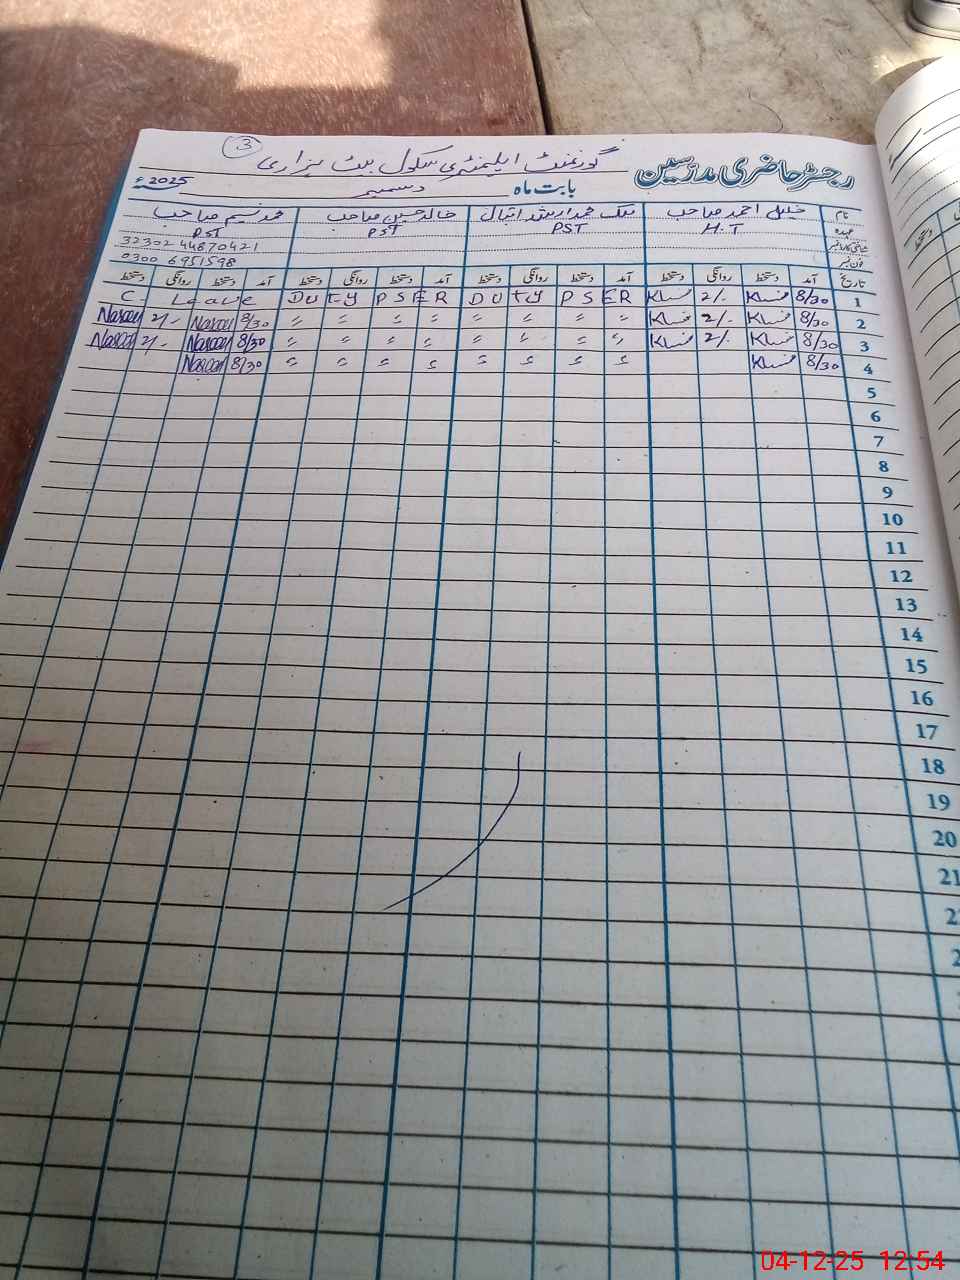 3
رجسٹر حاضری مدرسین گورنمنٹ ایلیمنٹری سکول بیٹ ہزاری
بابت ماہ دسمبر 2025ء
نام خلیل احمد صاحب ملک محمد ارشد اقبال خالد حسین صاحب محمد نسیم صاحب
عہدہ H.T PST PST PST
شناختی کارڈ نمبر 32302 44870421
فون نمبر 0300 6951598
تاریخ آمد دستخط روانگی دستخط آمد دستخط روانگی دستخط آمد دستخط روانگی دستخط آمد دستخط روانگی دستخط
C. Leave DUTY PSER DUTY PSER 2/- 8/30 1
2/- 8/30 〃 〃 〃 〃 〃 〃 〃 〃 2/- 8/30 2
2/- 8/30 〃 〃 〃 〃 〃 〃 〃 〃 2/- 8/30 3
8/30 〃 〃 〃 〃 〃 〃 〃 〃 8/30 4
5
6
7
8
9
10
11
12
13
14
15
16
17
18
19
20
21
04-12-25 12:54